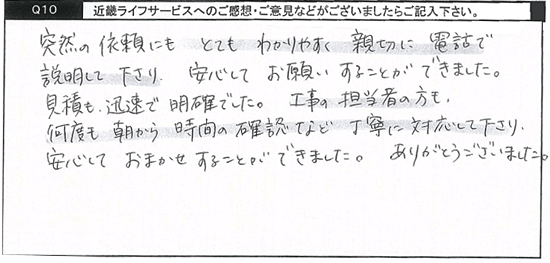 Q10 近畿ライフサービスへのご感想・ご意見などがございましたらご記入下さい。
突然の依頼にも とても わかりやすく 親切に 電話で
説明して 下さり、安心して お願いすることができました。
見積も、迅速で 明確でした。 工事の 担当者の方も、
何度も 朝から 時間の 確認など 丁寧に 対応して下さり、
安心して おまかせすることができました。 ありがとうございました。